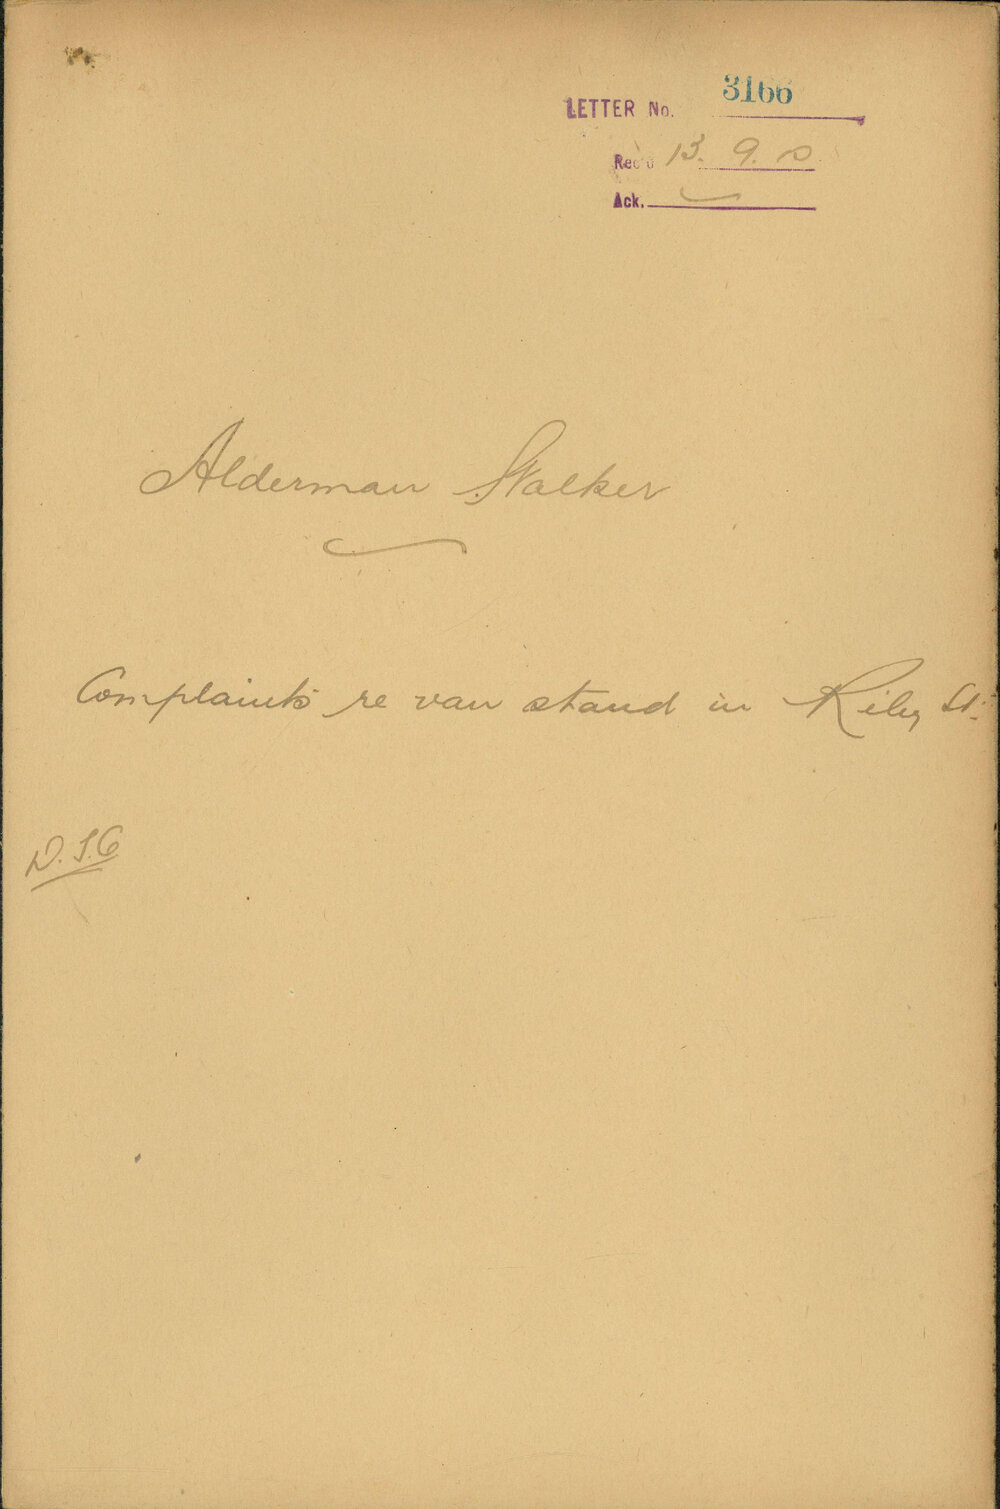 LETTER No. 3166
Rec'd 13. 9.
Ack.
Alderman Walker
Complaints re van stand in Riley St.